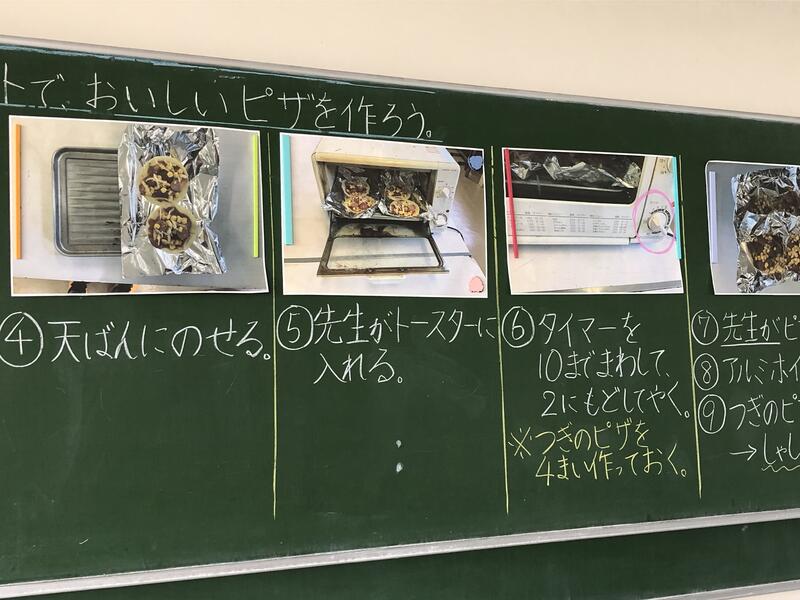 トで、おいしいピザを作ろう。
④天ばんにのせる。
⑤先生がトースターに
入れる。
⑥タイマーを
10までまわして、
2にもどしてやく。
※つぎのピザを
4まい作っておく。
⑦先生がピ
⑧アルミホイ
⑨つぎのピ
→しゃし